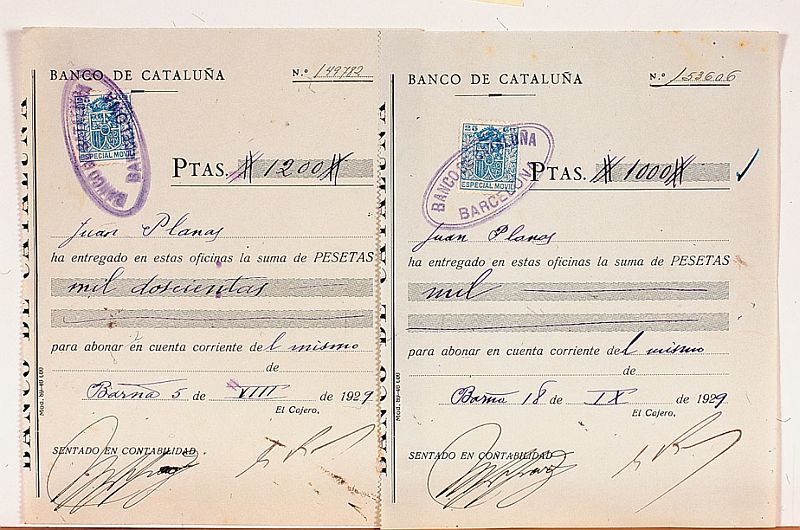 BANCO DE CATALUÑA
N.º 149782
BANCO DE CATALUÑA
BARCELONA
ESPECIAL MOVIL
PTAS. # 1200 #
Juan Planas
ha entregado en estas oficinas la suma de PESETAS
mil doscientas
para abonar en cuenta corriente del mismo
de
Barna 5 de VIII de 1929
El Cajero,
SENTADO EN CONTABILIDAD
BANCO DE CATALUÑA
BANCO DE CATALUÑA
N.º 153606
BANCO DE CATALUÑA
BARCELONA
ESPECIAL MOVIL
PTAS. # 1000 #
Juan Planas
ha entregado en estas oficinas la suma de PESETAS
mil
para abonar en cuenta corriente del mismo
de
Barna 18 de IX de 1929
El Cajero,
SENTADO EN CONTABILIDAD
BANCO DE CATALUÑA